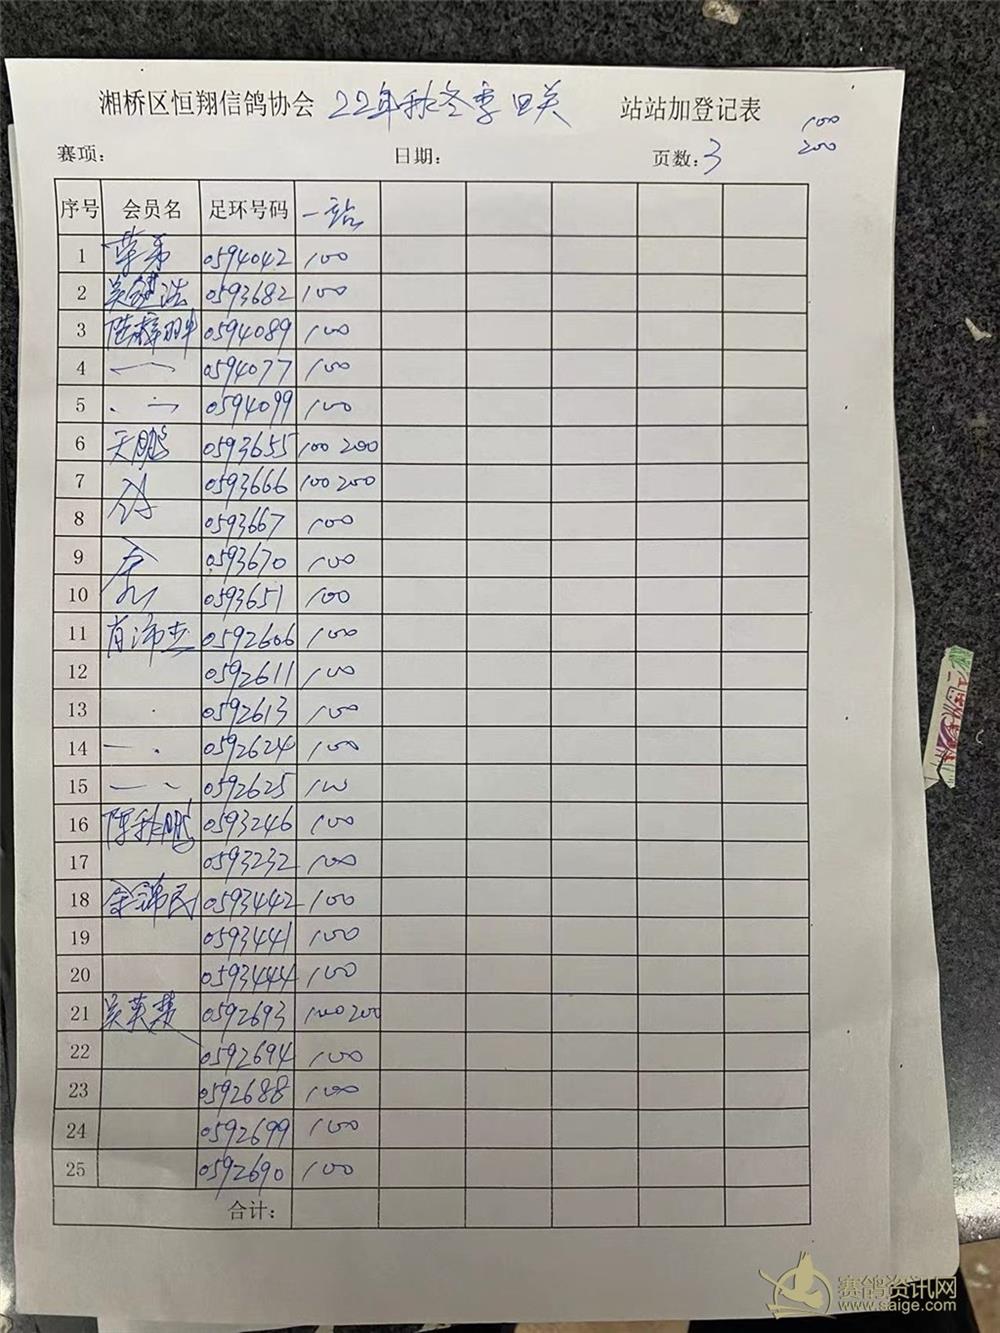 湘桥区恒翔信鸽协会 22年秋冬季四关 站站加登记表
100
200
赛项: 日期: 页数:3
序号 会员名 足环号码 一站
1 0594042 100
2 吴健浩 0593682 100
3 0594089 100
4 0594077 100
5 0594099 100
6 天鹏 0593655 100 200
7 0593666 100 200
8 0593667 100
9 0593670 100
10 0593651 100
11 肖沛杰 0592606 100
12 0592611 100
13 0592613 100
14 0592624 100
15 0592625 100
16 陈秋鹏 0593246 100
17 0593232 100
18 余锦民 0593442 100
19 0593441 100
20 0593444 100
21 0592693 100 200
22 0592694 100
23 0592688 100
24 0592699 100
25 0592690 100
合计:
赛鸽资讯网
www.saige.com